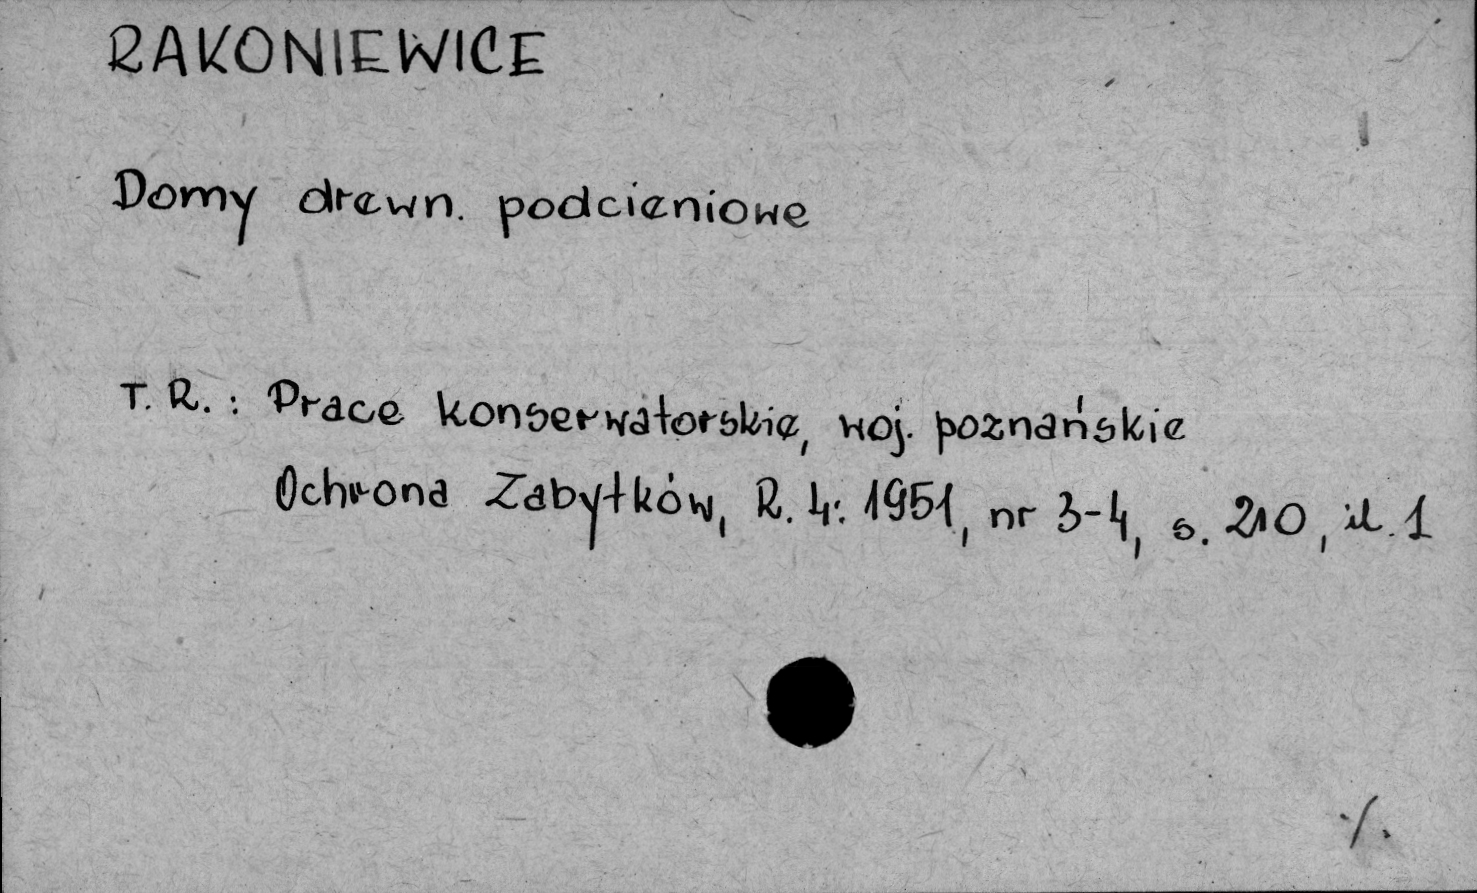 RAKONIEWICE
Domy drewn. podcieniowe
T. R. : Prace konserwatorskie, woj. poznańskie
Ochrona Zabytków, R. 4: 1951, nr 3-4, s. 210, il. 1
./.